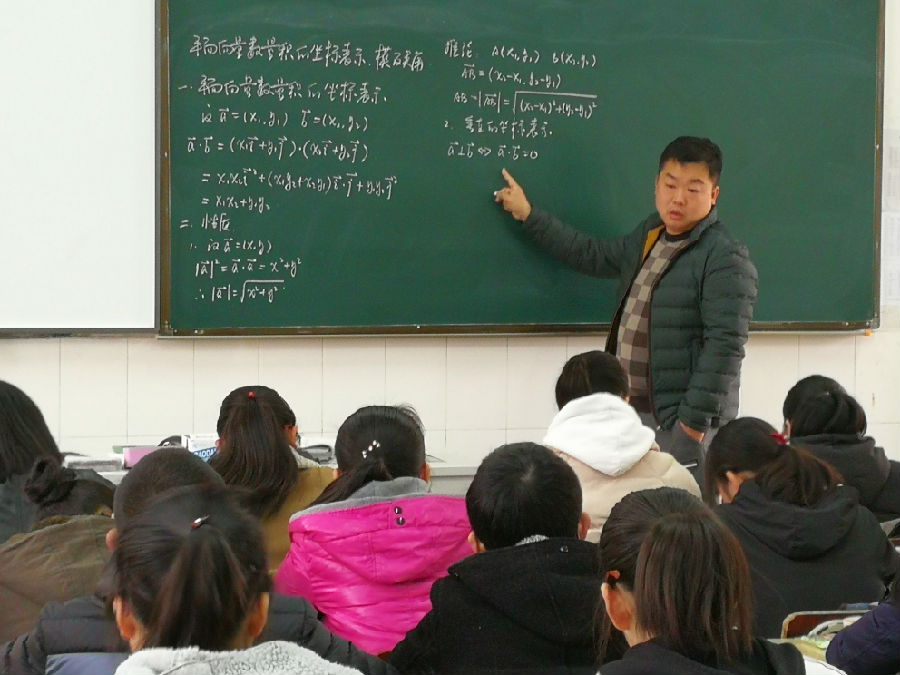 平面向量数量积的坐标表示、模、夹角
一. 平面向量数量积的坐标表示
设 a⃗=(x₁,y₁) b⃗=(x₂,y₂)
a⃗·b⃗=(x₁i⃗+y₁j⃗)·(x₂i⃗+y₂j⃗)
=x₁x₂i⃗²+(x₁y₂+x₂y₁)i⃗·j⃗+y₁y₂j⃗²
=x₁x₂+y₁y₂
二. 性质
1. 设 a⃗=(x,y)
|a⃗|²=a⃗·a⃗=x²+y²
∴|a⃗|=√(x²+y²)
推论: A(x₁,y₁) B(x₂,y₂)
AB⃗=(x₂-x₁,y₂-y₁)
AB=|AB⃗|=√((x₂-x₁)²+(y₂-y₁)²)
2. 垂直的坐标表示
a⃗⊥b⃗⇔a⃗·b⃗=0